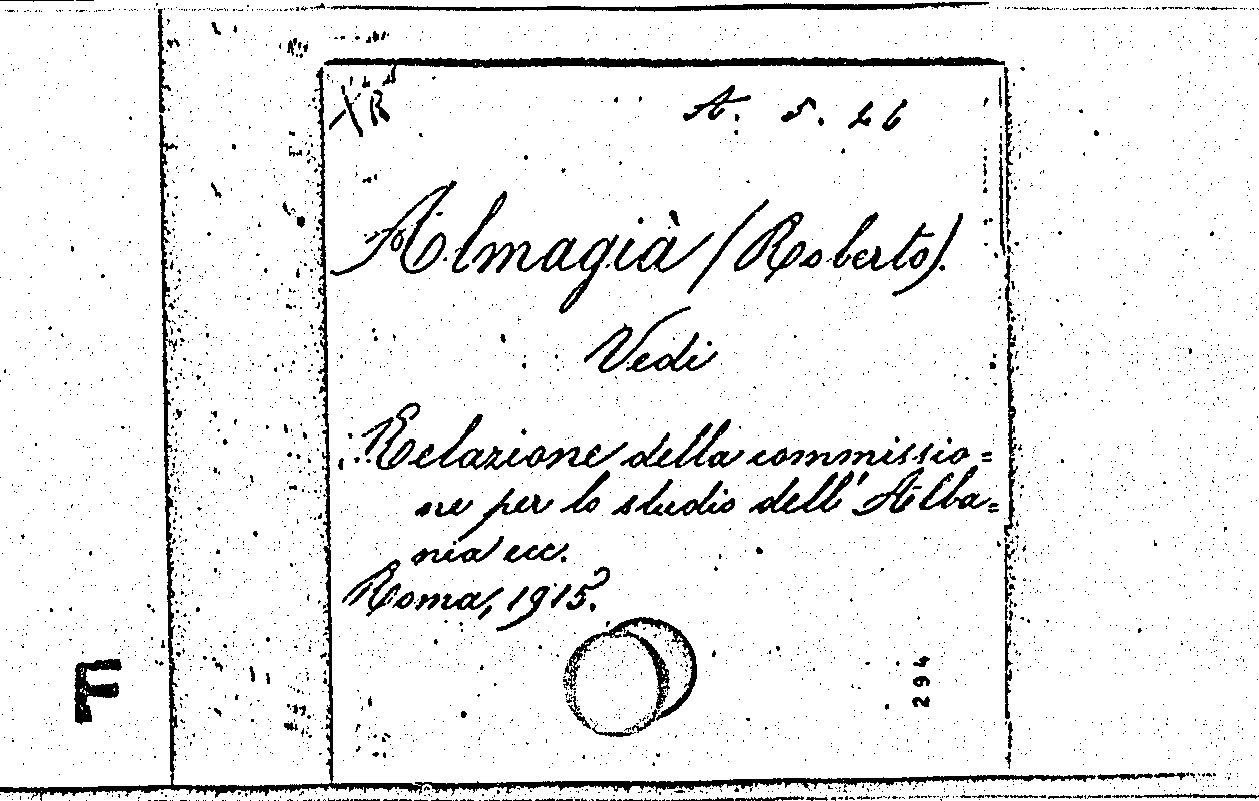 A. 5. 26
Almagià (Roberto).
Vedi
Relazione della commissio=
ne per lo studio dell'Alba=
nia ecc.
Roma, 1915.
294
F